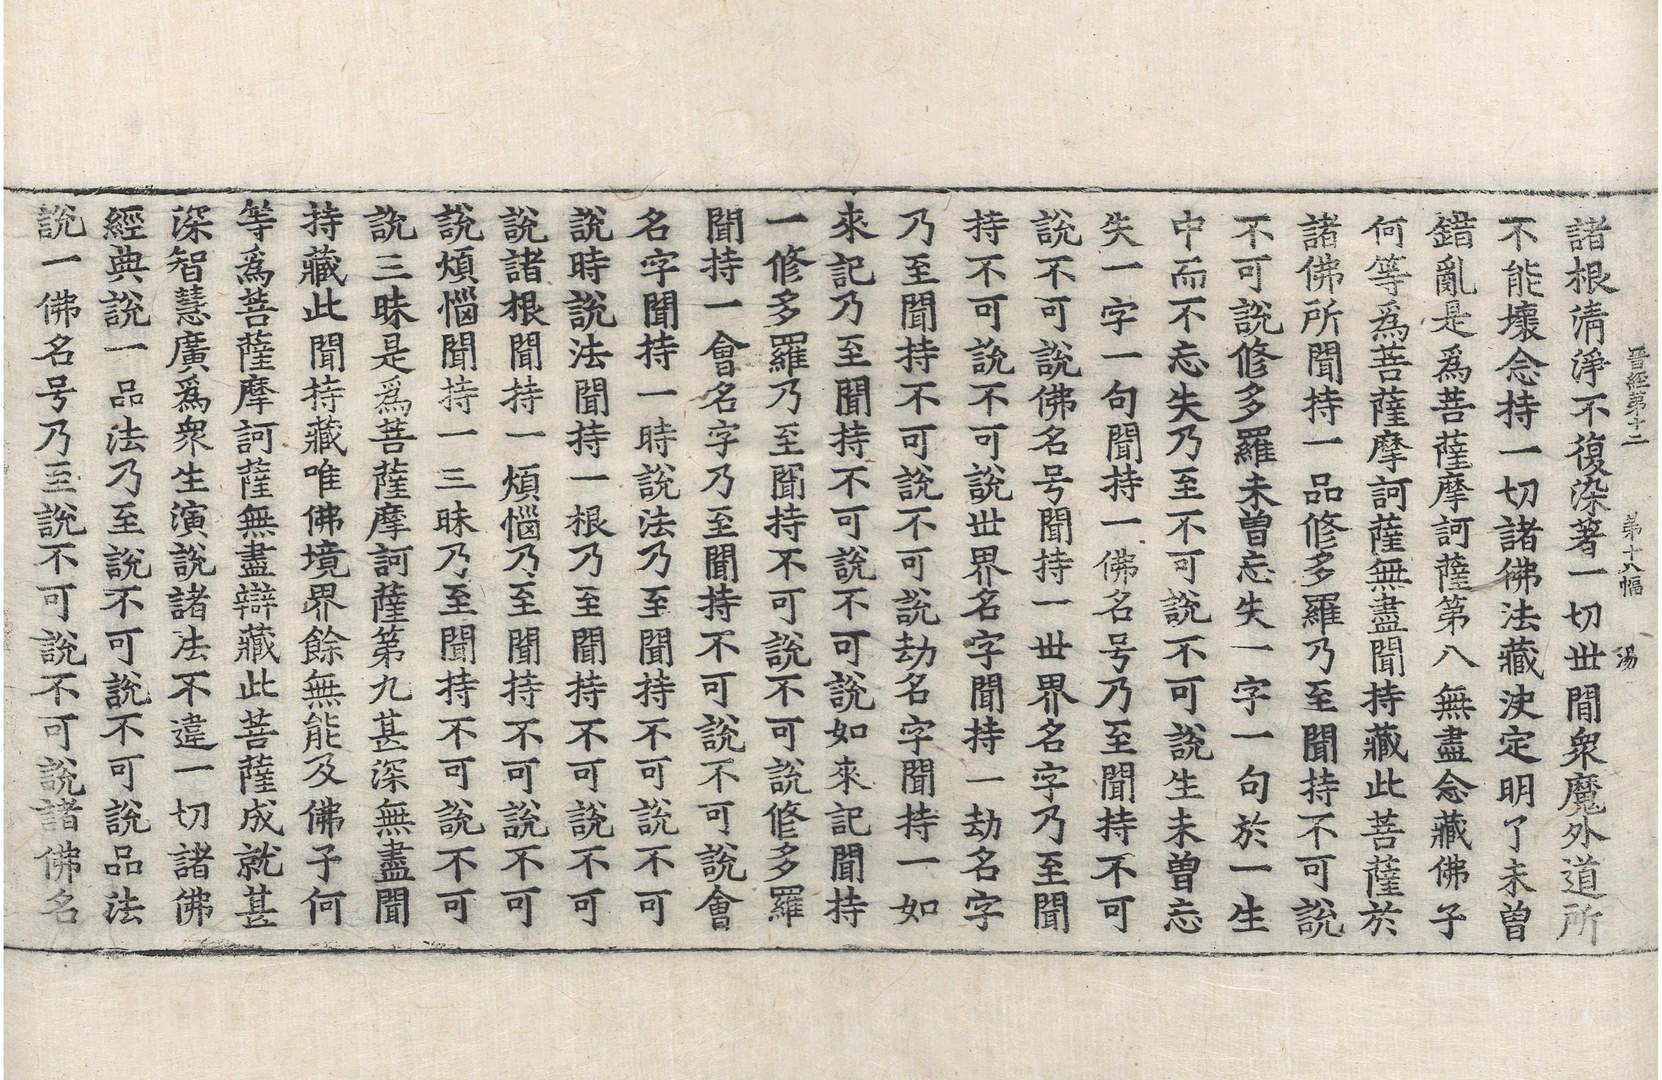 晉經第十二　第十八幅　湯
諸根清淨不復染著一切世間衆魔外道所
不能壞念持一切諸佛法藏決定明了未曽
錯亂是爲菩薩摩訶薩第八無盡念藏佛子
何等爲菩薩摩訶薩無盡聞持藏此菩薩於
諸佛所聞持一品修多羅乃至聞持不可說
不可說修多羅未曽忘失一字一句於一生
中而不忘失乃至不可說不可說生未曽忘
失一字一句聞持一佛名号乃至聞持不可
說不可說佛名号聞持一世界名字乃至聞
持不可說不可說世界名字聞持一劫名字
乃至聞持不可說不可說劫名字聞持一如
來記乃至聞持不可說不可說如來記聞持
一修多羅乃至聞持不可說不可說修多羅
聞持一會名字乃至聞持不可說不可說會
名字聞持一時說法乃至聞持不可說不可
說時說法聞持一根乃至聞持不可說不可
說諸根聞持一煩惱乃至聞持不可說不可
說煩惱聞持一三昧乃至聞持不可說不可
說三昧是爲菩薩摩訶薩第九甚深無盡聞
持藏此聞持藏唯佛境界餘無能及佛子何
等爲菩薩摩訶薩無盡辯藏此菩薩成就甚
深智慧廣爲衆生演說諸法不違一切諸佛
經典說一品法乃至說不可說不可說品法
說一佛名号乃至說不可說不可說諸佛名